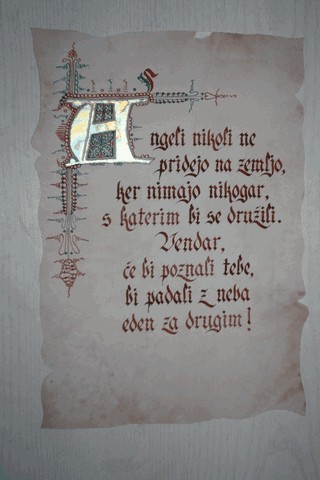 Angeli nikoli ne
pridejo na zemljo,
ker nimajo nikogar,
s katerim bi se družili.
Vendar,
če bi poznali tebe,
bi padali z neba
eden za drugim!